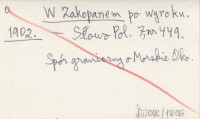 W Zakopanem po wyroku.
1902. — Słowo Pol. Nr 449.
Spór graniczny o Morskie Oko.